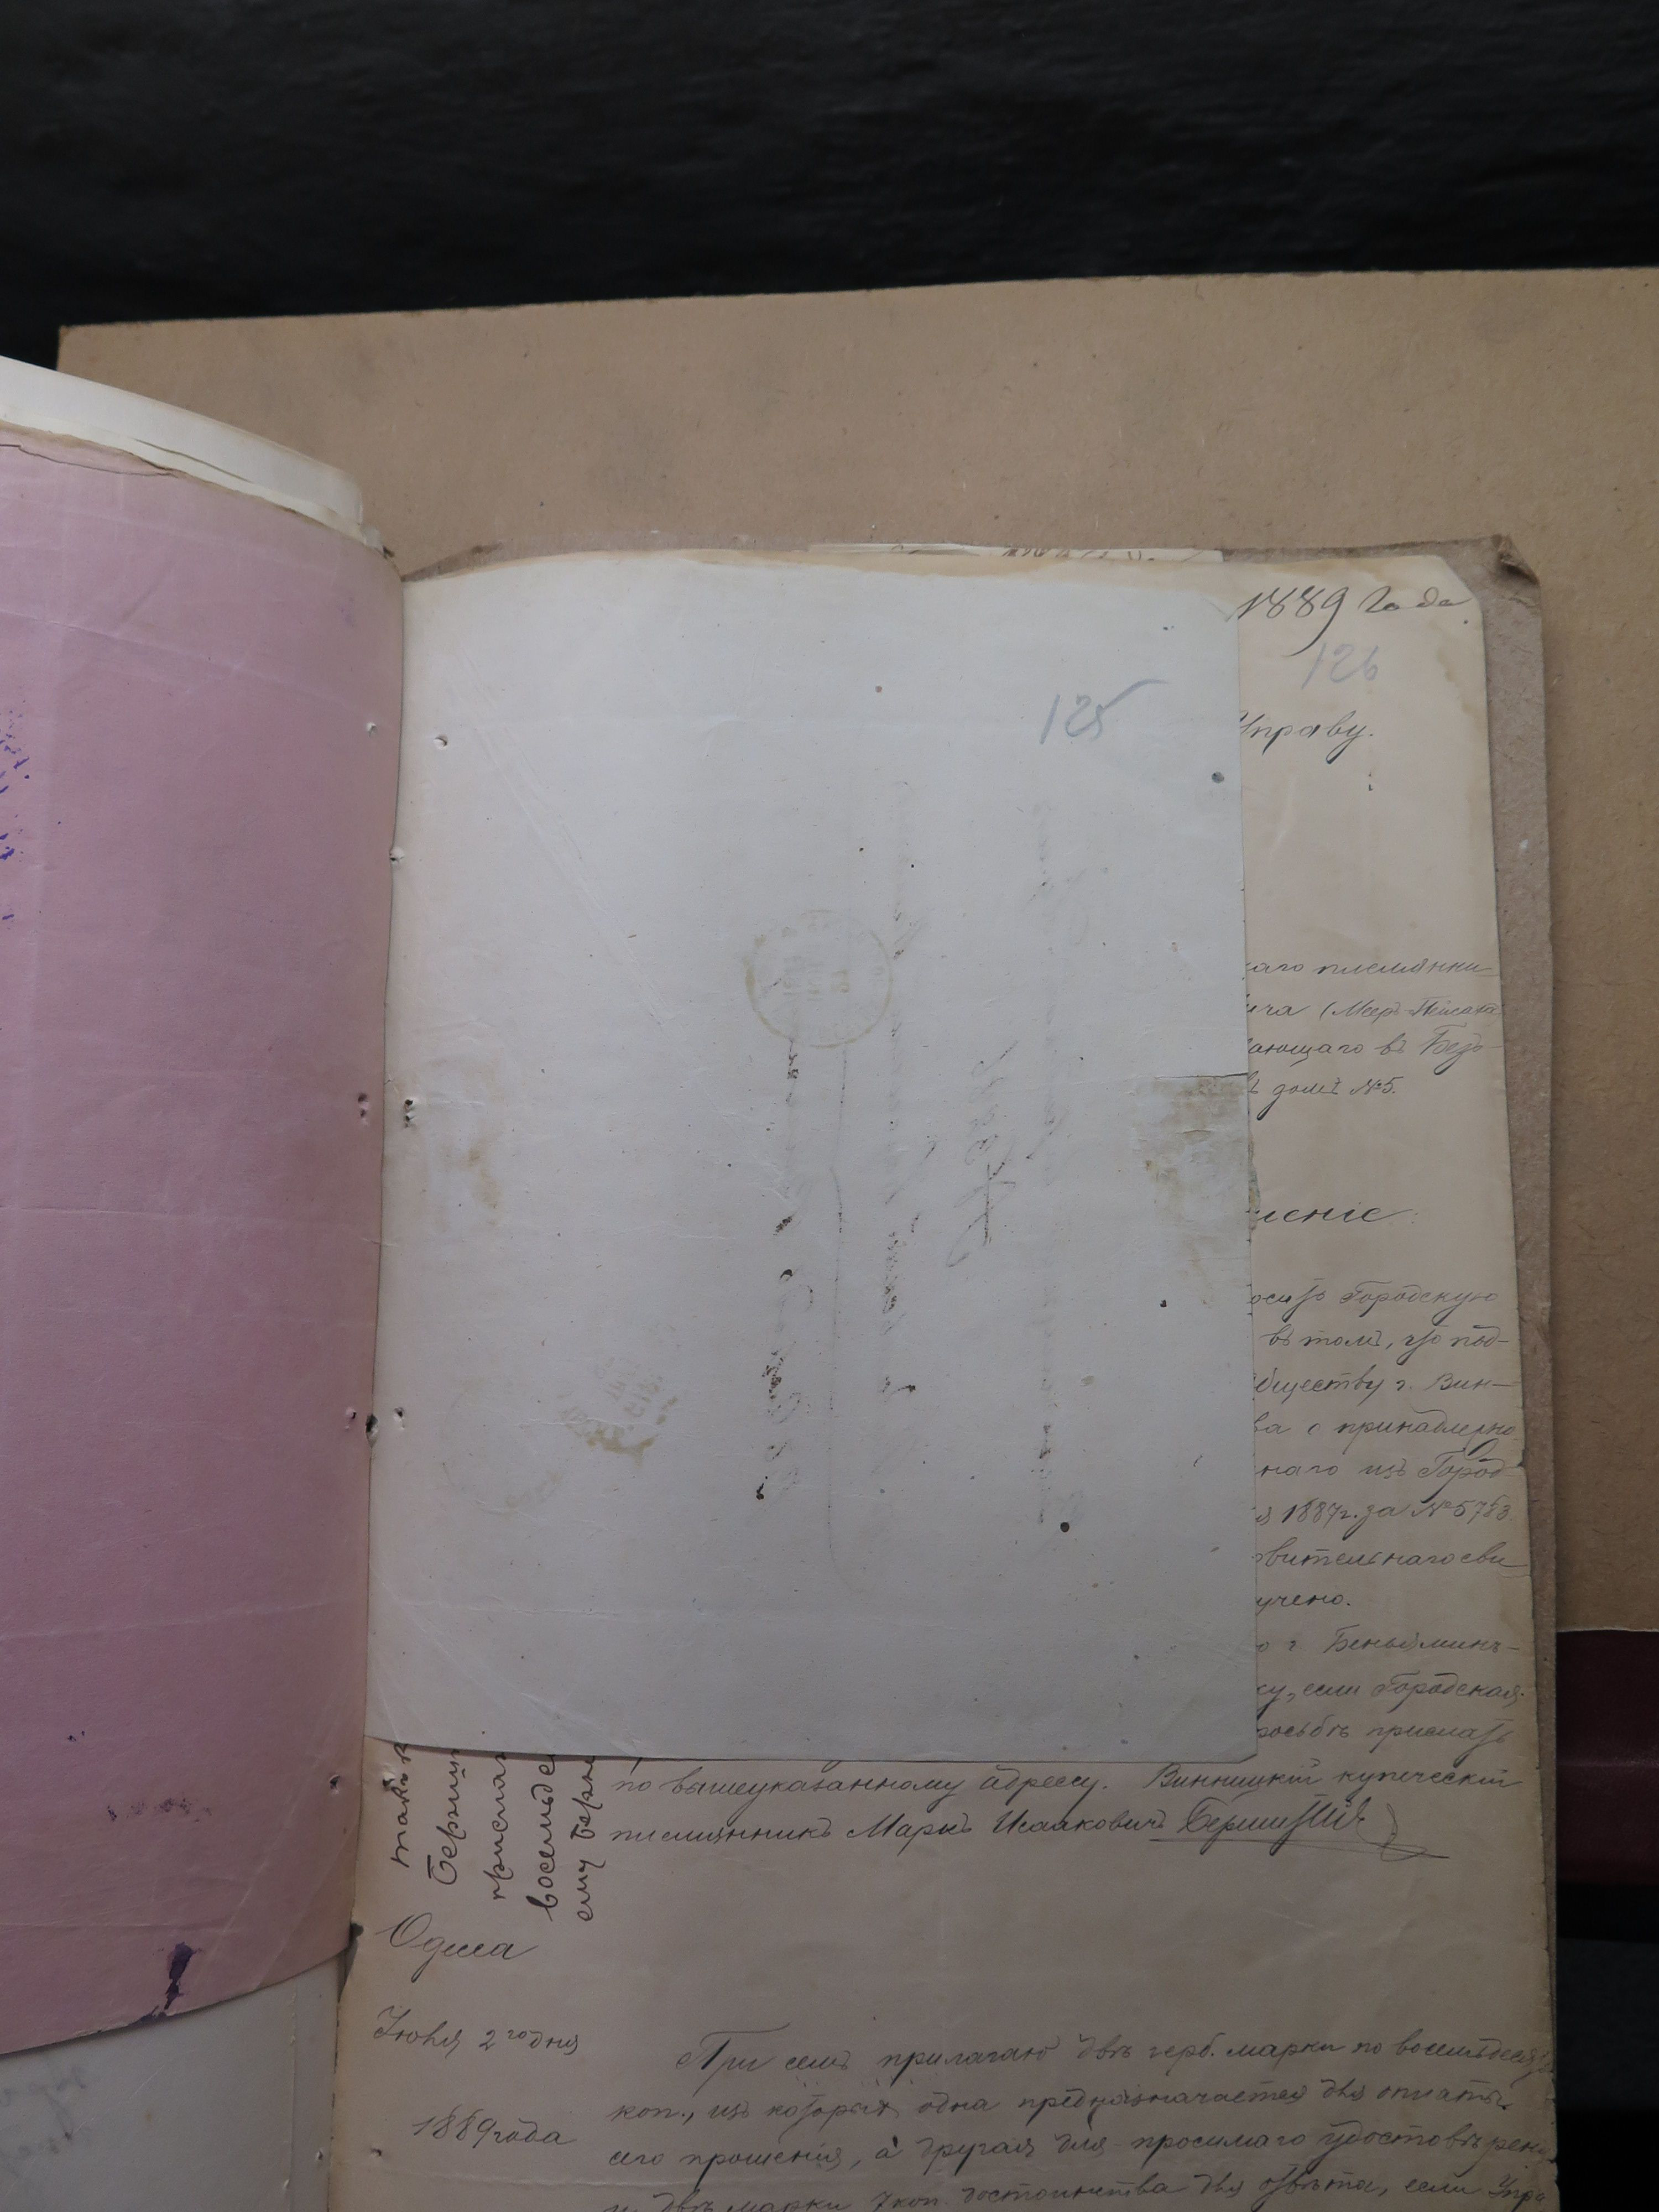 1889 года
126
125
Управу.
каго племянни
ича (Меер-Пейсаха
ающаго въ Безъ-
ѣ домѣ №5.
шеніе
осить Городскую
въ томъ, что под-
обществу г. Вин-
ва о принадлежно
наго изъ Город-
я 1887г. за №5753
овительнаго сви
учено.
о г. Беньяминъ-
ку, если Городская
росьбѣ прислать
по вышеуказанному адресу. Винницкій купеческій
племянникъ Маркъ Исааковичъ
прислат
восемьде
ему
Одесса
Іюня 2го дня
1889 года
При семъ прилагаю двѣ герб. марки по восемьдеся
коп., изъ которыхъ одна предназначается для оплаты
сего прошенія, а другая для просимаго удостовѣрен
и двѣ марки 7 коп. достоинства для отвѣта, если Упра